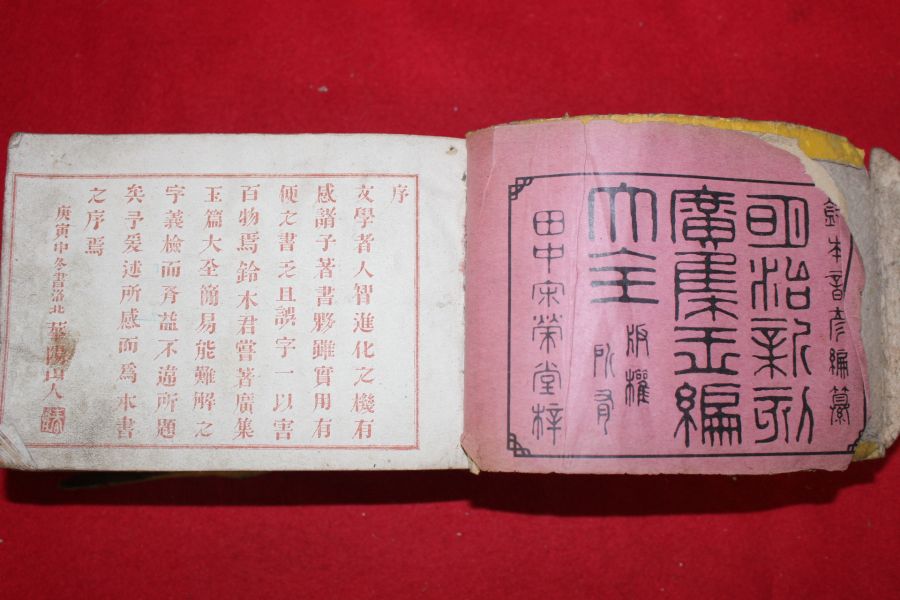 鈴木音彦編纂
明治新刻
廣集玉編
大全
版權
所有
田中宋榮堂梓
序
文學者人智進化之機有
感諸子著書夥雖實用有
便之書乏且誤字一以害
百物焉鈴木君嘗著廣集
玉篇大全簡易能難解之
字義檢而胥益不違所題
矣予爰述所感而爲本書
之序焉
庚寅中冬書洛北 華陽山人